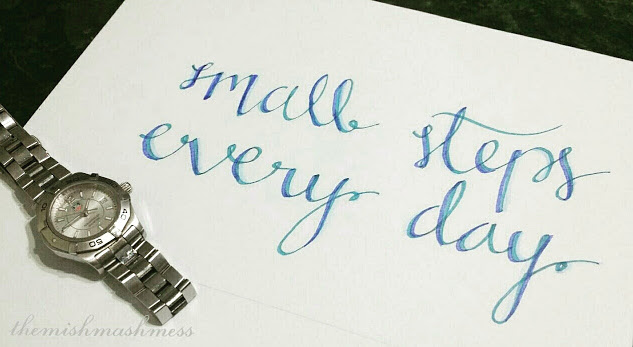 small steps
every day.
themishmashmess